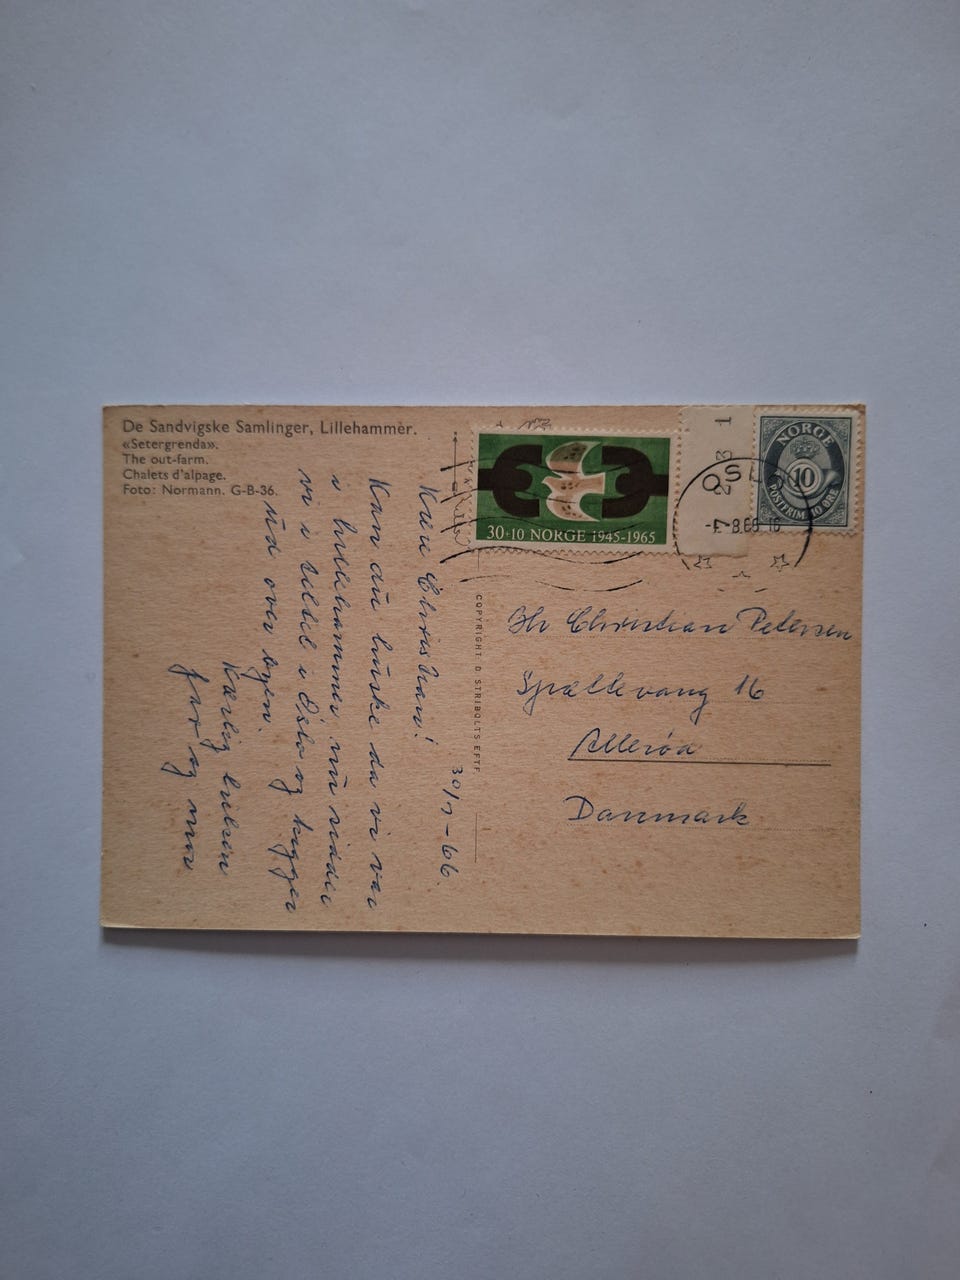 De Sandvigske Samlinger, Lillehammer.
«Setergrenda».
The out-farm.
Chalets d'alpage.
Foto: Normann. G-B-36.
30/7-66.
Kære Christian!
Kan du huske da vi var
i Lillehammer, nu sidder
vi i teltet i Oslo og kigger
ud over byen.
Kærlig hilsen
far og mor
COPYRIGHT: D STRIBOLTS EFTF.
30+10 NORGE 1945-1965
NORGE
10
POSTFRIM. 10 ØRE
OSL
Hr Christian Petersen
Spættevang 16
Allerød
Danmark